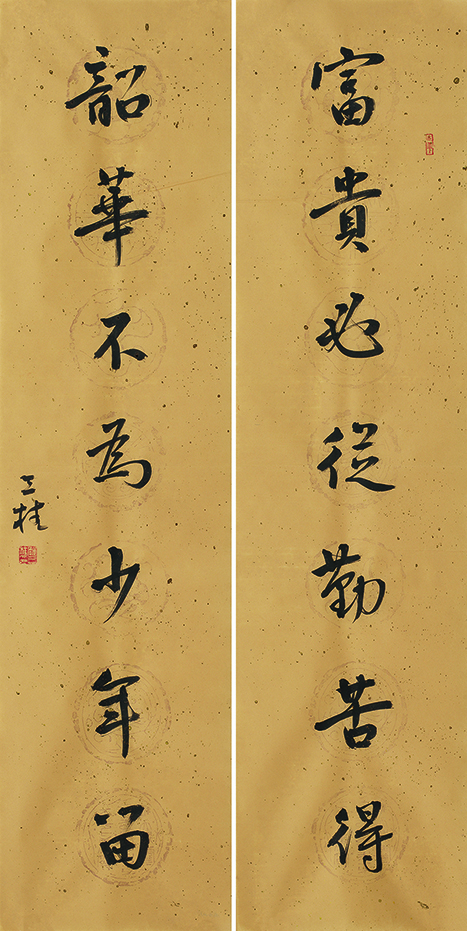 富貴必從勤苦得
韶華不為少年留
三桂